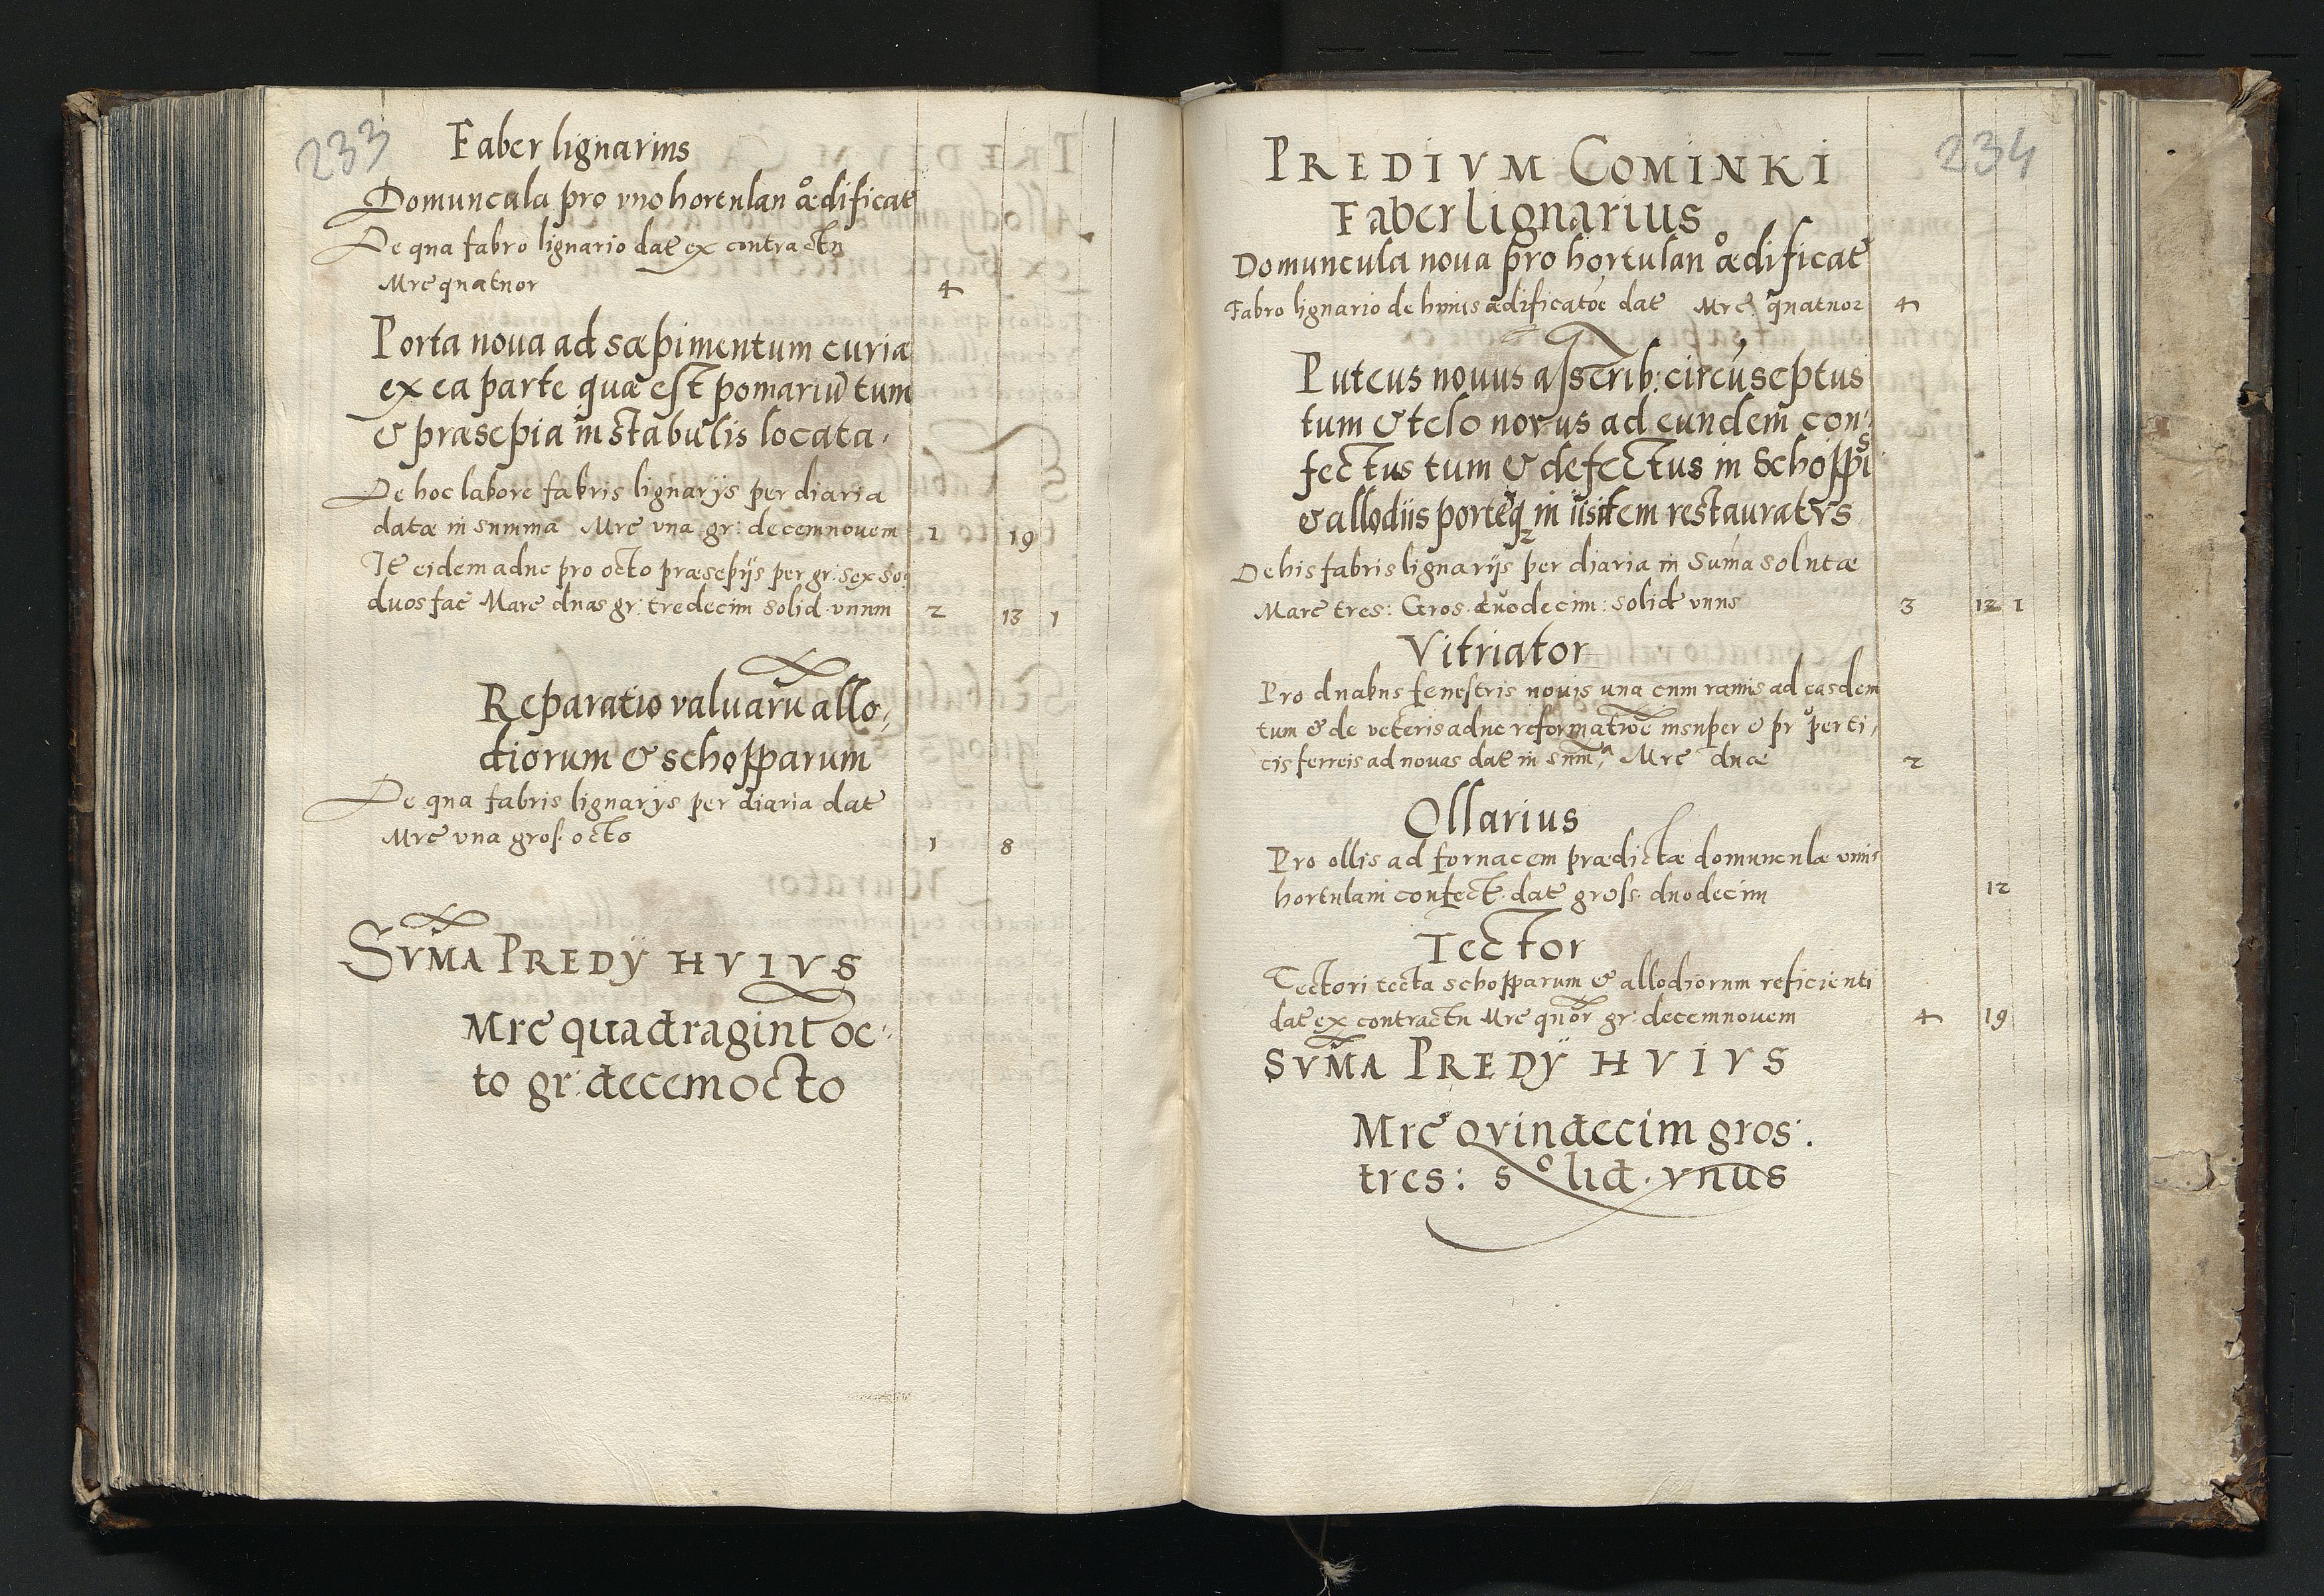 233
Faber lignarius
Domuncula pro vno hortulan ædificat
De qua fabro lignario dat ex contractu
Mrc quatuor 4
Porta noua ad sæpimentum curiæ
ex ea parte quæ est pomariũ tum
& præsepia in stabulis locata.
De hoc labore fabris lignarijs per diaria
datæ in summa Mrc vna gr: decemnouem 1 19
Itẽ eidem adhuc pro octo præsepijs per gr: sex so:
duos fac̃ Marc duas gr: tredecim solid vnum 2 13 1
Reparatio valuarũ allo-
diorum & schopparum
De qua fabris lignarijs per diaria dat
Mrc vna gros. octo 1 8
SVM̃A PREDIJ HVIVS
Mrc quadragint oc-
to gr: decem octo
234
PREDIVM COMINKI
Faber lignarius
Domuncula noua pro hortulan ædificat
Fabro lignario de huius ædificatõe dat Mrc quatuor 4
Puteus nouus asscrib: circũseptus
tum & telo novus ad eundem con-
fectus tum & defectus in Schoppis
& allodiis porteq in iisdem restauratvs
De his fabris lignarijs per diaria in Sum̃a solutæ
Marc tres: Gros. duodecim: solid vnus 3 12 1
Vitriator
Pro duabus fenestris nouis una cum ramis ad easdem
tum & de veteris adhuc reformatiõe insuper & pr perti-
cis ferreis ad nouas dat in sum̃a Mrc duæ 2
Ollarius
Pro ollis ad fornacem prædictæ domunculæ vnius
hortulani confect. dat gross. duodecim 12
Tector
Tectori tecta schopparum & allodiorum reficienti
dat ex contractu Mrc quõr gr: decemnouem 4 19
SVM̃A PREDIJ HVIVS
Mrc qvindecim gros:.
tres: solid. vnus